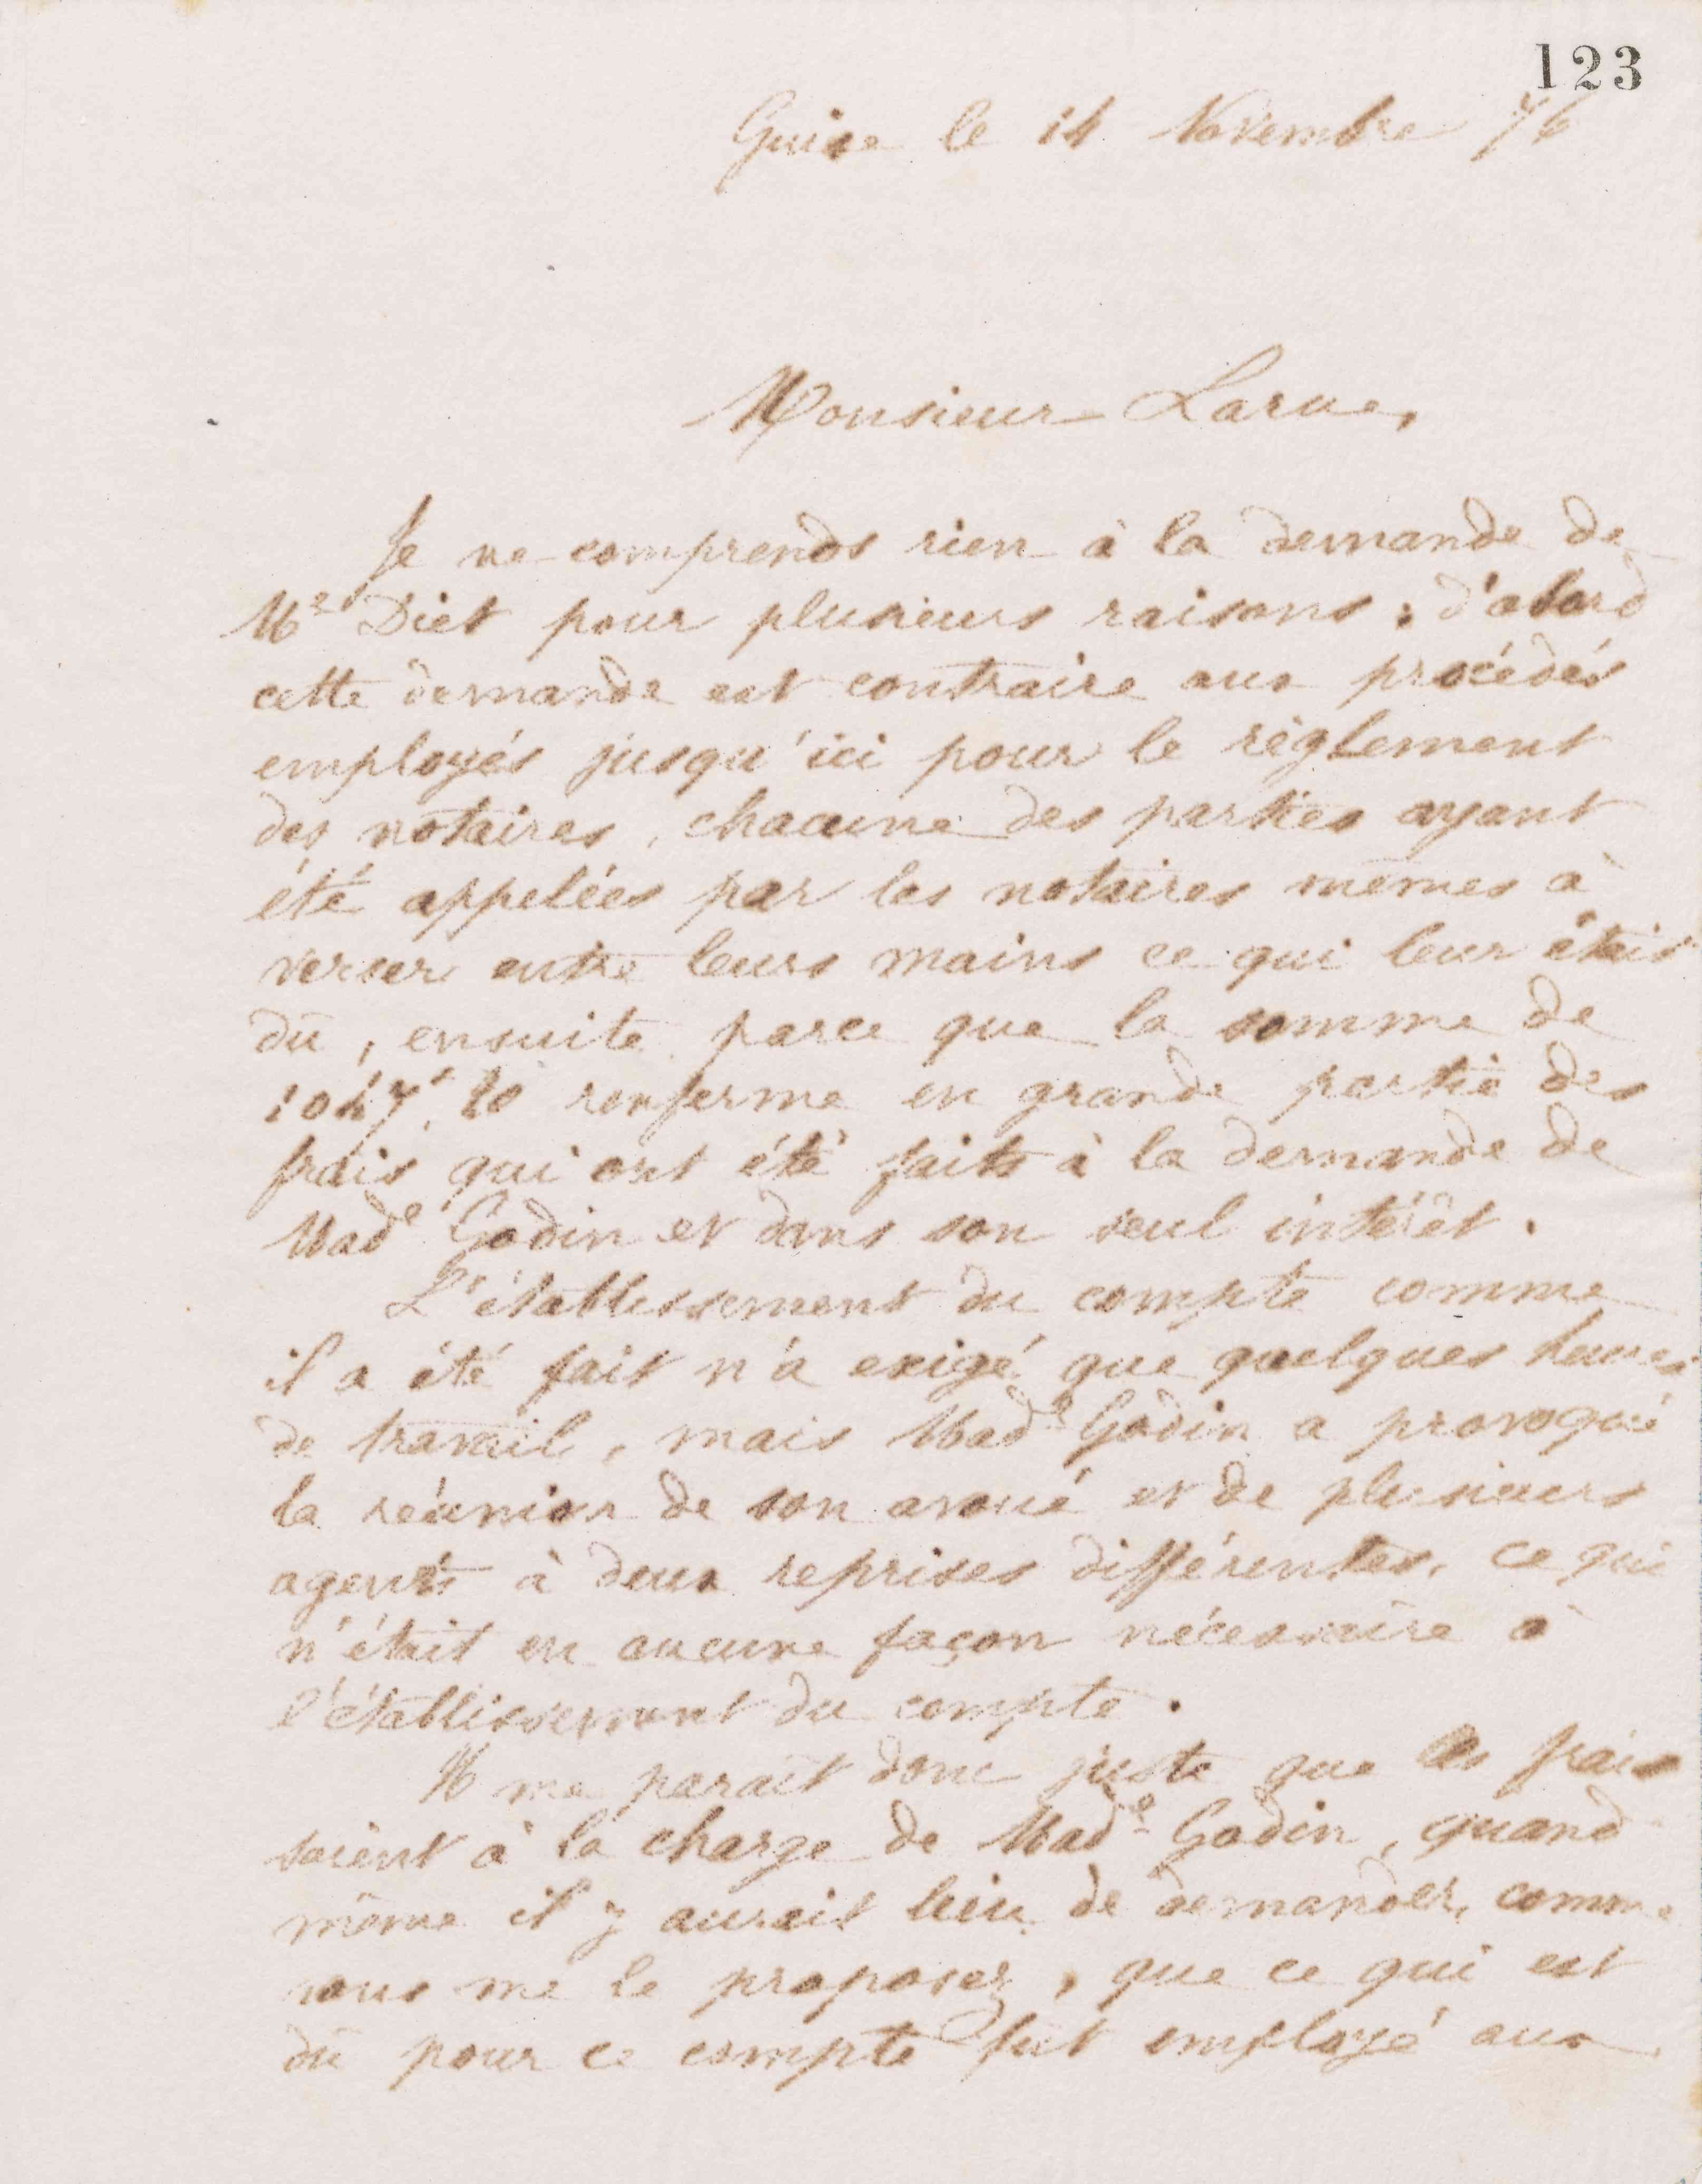 123
Guise le 14 Novembre 76
Monsieur Larue,
Je ne comprends rien à la demande de
Me Diet pour plusieurs raisons : d'abord
cette demande est contraire aux procédés
employés jusqu'ici pour le règlement
des notaires, chacune des parties ayant
été appelées par les notaires mêmes à
verser entre leurs mains ce qui leur était
dû, ensuite parce que la somme de
renferme en grande partie des
frais qui ont été faits à la demande de
Made Godin et dans son seul intérêt.
L'établissement du compte comme
il a été fait n'a exigé que quelques heures
de travail, mais Made Godin a provoqué
la réunion de son avoué et de plusieurs
agents à deux reprises différentes, ce qui
n'était en aucune façon nécessaire à
l'établissement du compte.
Il me paraît donc juste que les frais
soient à la charge de Made Godin, quand
même il y aurait lieu de demander, comme
vous me le proposez, que ce qui est
dû pour ce compte fut employé aux